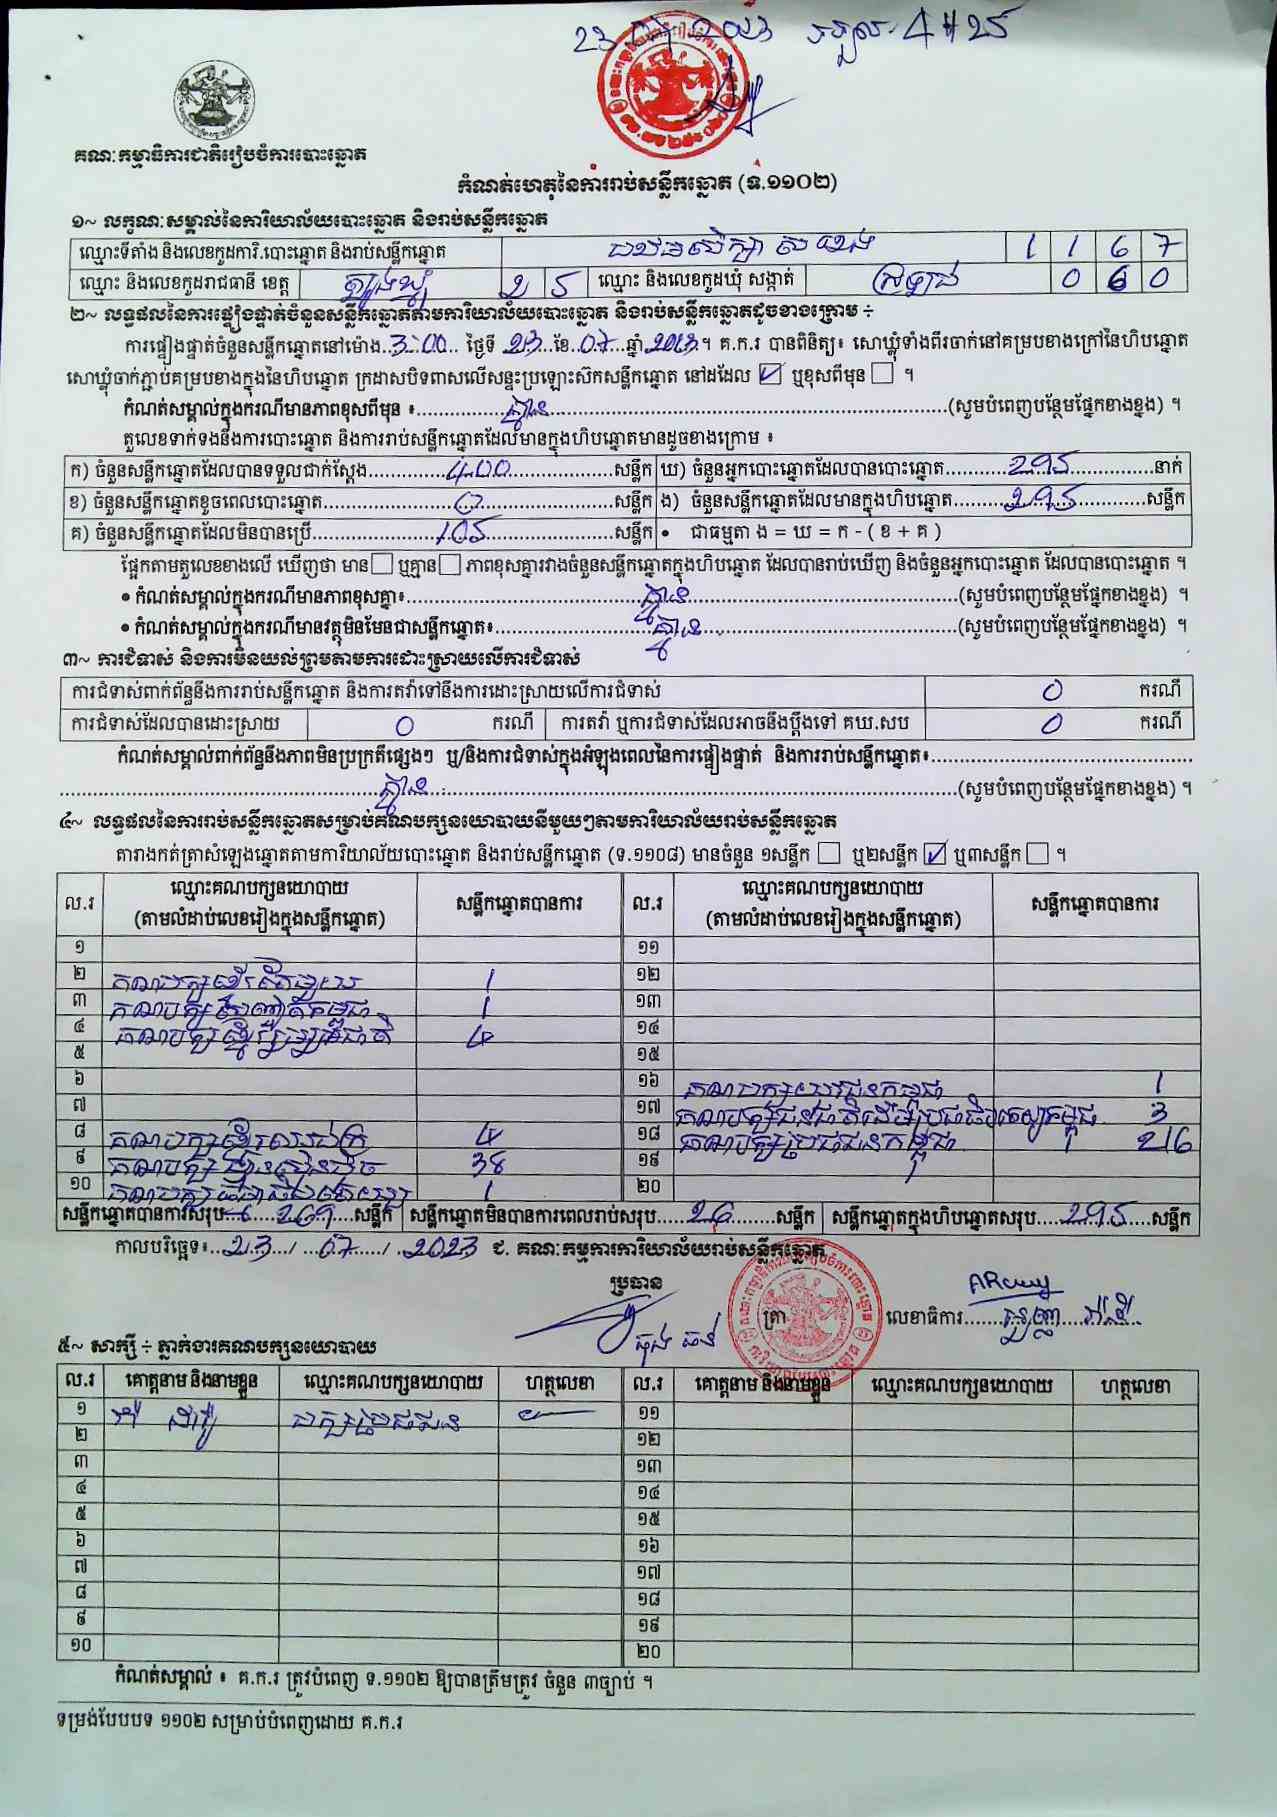 23
4 25
គណៈកម្មាធិការជាតិរៀបចំការបោះឆ្នោត
កំណត់ហេតុនៃការរាប់សន្លឹកឆ្នោត (ទ.១១០២)
១~ លក្ខណៈសម្គាល់នៃការិយាល័យបោះឆ្នោត និងរាប់សន្លឹកឆ្នោត
ឈ្មោះទីតាំង និងលេខកូដការិ.បោះឆ្នោត និងរាប់សន្លឹកឆ្នោត 1 1 6 7
ឈ្មោះ និងលេខកូដរាជធានី ខេត្ត ត្បូងឃ្មុំ 2 5 ឈ្មោះ និងលេខកូដឃុំ សង្កាត់ 0 6 0
២~ លទ្ធផលនៃការផ្ទៀងផ្ទាត់ចំនួនសន្លឹកឆ្នោតតាមការិយាល័យបោះឆ្នោត និងរាប់សន្លឹកឆ្នោតដូចខាងក្រោម ÷
ការផ្ទៀងផ្ទាត់ចំនួនសន្លឹកឆ្នោតនៅម៉ោង...3:00... ថ្ងៃទី 23...ខែ.07...ឆ្នាំ 2023។ គ.ក.រ បានពិនិត្យ៖ សោឃ្លុំទាំងពីរចាក់នៅគម្របខាងក្រៅនៃហិបឆ្នោត
សោឃ្លុំចាក់ភ្ជាប់គម្របខាងក្នុងនៃហិបឆ្នោត ក្រដាសបិទពាសលើសន្ទះប្រឡោះស៊កសន្លឹកឆ្នោត នៅដដែល ☑ ឬខុសពីមុន ☐ ។
កំណត់សម្គាល់ក្នុងករណីមានភាពខុសពីមុន ៖.......គ្មាន.......(សូមបំពេញបន្ថែមផ្នែកខាងខ្នង) ។
តួលេខទាក់ទងនឹងការបោះឆ្នោត និងការរាប់សន្លឹកឆ្នោតដែលមានក្នុងហិបឆ្នោតមានដូចខាងក្រោម ៖
ក) ចំនួនសន្លឹកឆ្នោតដែលបានទទួលជាក់ស្តែង.......400.......សន្លឹក ឃ) ចំនួនអ្នកបោះឆ្នោតដែលបានបោះឆ្នោត.......295.......នាក់
ខ) ចំនួនសន្លឹកឆ្នោតខូចពេលបោះឆ្នោត.......0.......សន្លឹក ង) ចំនួនសន្លឹកឆ្នោតដែលមានក្នុងហិបឆ្នោត.......295.......សន្លឹក
គ) ចំនួនសន្លឹកឆ្នោតដែលមិនបានប្រើ.......105.......សន្លឹក • ជាធម្មតា ង = ឃ = ក - ( ខ + គ )
ផ្អែកតាមតួលេខខាងលើ ឃើញថា មាន☐ ឬគ្មាន☐ ភាពខុសគ្នារវាងចំនួនសន្លឹកឆ្នោតក្នុងហិបឆ្នោត ដែលបានរាប់ឃើញ និងចំនួនអ្នកបោះឆ្នោត ដែលបានបោះឆ្នោត ។
• កំណត់សម្គាល់ក្នុងករណីមានភាពខុសគ្នា៖.......គ្មាន.......(សូមបំពេញបន្ថែមផ្នែកខាងខ្នង) ។
• កំណត់សម្គាល់ក្នុងករណីមានវត្ថុមិនមែនជាសន្លឹកឆ្នោត៖.......គ្មាន.......(សូមបំពេញបន្ថែមផ្នែកខាងខ្នង) ។
៣~ ការជំទាស់ និងការមិនយល់ព្រមតាមការដោះស្រាយលើការជំទាស់
ការជំទាស់ពាក់ព័ន្ធនឹងការរាប់សន្លឹកឆ្នោត និងការតវ៉ាទៅនឹងការដោះស្រាយលើការជំទាស់ 0 ករណី
ការជំទាស់ដែលបានដោះស្រាយ 0 ករណី ការតវ៉ា ឬការជំទាស់ដែលអាចនឹងប្តឹងទៅ គឃ.សប 0 ករណី
កំណត់សម្គាល់ពាក់ព័ន្ធនឹងភាពមិនប្រក្រតីផ្សេងៗ ឬ/និងការជំទាស់ក្នុងអំឡុងពេលនៃការផ្ទៀងផ្ទាត់ និងការរាប់សន្លឹកឆ្នោត៖.......
.......គ្មាន.......(សូមបំពេញបន្ថែមផ្នែកខាងខ្នង) ។
៤~ លទ្ធផលនៃការរាប់សន្លឹកឆ្នោតសម្រាប់គណបក្សនយោបាយនីមួយៗតាមការិយាល័យរាប់សន្លឹកឆ្នោត
តារាងកត់ត្រាសំឡេងឆ្នោតតាមការិយាល័យបោះឆ្នោត និងរាប់សន្លឹកឆ្នោត (ទ.១១០៨) មានចំនួន ១សន្លឹក ☐ ឬ២សន្លឹក ☑ ឬ៣សន្លឹក ☐ ។
ល.រ ឈ្មោះគណបក្សនយោបាយ (តាមលំដាប់លេខរៀងក្នុងសន្លឹកឆ្នោត) សន្លឹកឆ្នោតបានការ ល.រ ឈ្មោះគណបក្សនយោបាយ (តាមលំដាប់លេខរៀងក្នុងសន្លឹកឆ្នោត) សន្លឹកឆ្នោតបានការ
១ ១១
២ គណបក្ស 1 ១២
៣ គណបក្ស 1 ១៣
៤ គណបក្ស 4 ១៤
៥ ១៥
៦ ១៦ គណបក្សយុវជនកម្ពុជា 1
៧ ១៧ គណបក្ស 3
៨ គណបក្ស 4 ១៨ គណបក្សប្រជាជនកម្ពុជា 216
៩ គណបក្សហ្វ៊ុនស៊ិនប៉ិច 38 ១៩
១០ គណបក្ស 1 ២០
សន្លឹកឆ្នោតបានការសរុប...269...សន្លឹក សន្លឹកឆ្នោតមិនបានការពេលរាប់សរុប...26...សន្លឹក សន្លឹកឆ្នោតក្នុងហិបឆ្នោតសរុប...295...សន្លឹក
កាលបរិច្ឆេទ៖..23../..07../..2023 ជ. គណៈកម្មការការិយាល័យរាប់សន្លឹកឆ្នោត
ប្រធាន
ត្រា លេខាធិការ.......
៥~ សាក្សី ÷ ភ្នាក់ងារគណបក្សនយោបាយ
ល.រ គោត្តនាម និងនាមខ្លួន ឈ្មោះគណបក្សនយោបាយ ហត្ថលេខា ល.រ គោត្តនាម និងនាមខ្លួន ឈ្មោះគណបក្សនយោបាយ ហត្ថលេខា
១ បក្សប្រជាជន ១១
២ ១២
៣ ១៣
៤ ១៤
៥ ១៥
៦ ១៦
៧ ១៧
៨ ១៨
៩ ១៩
១០ ២០
កំណត់សម្គាល់ ៖ គ.ក.រ ត្រូវបំពេញ ទ.១១០២ ឱ្យបានត្រឹមត្រូវ ចំនួន ៣ច្បាប់ ។
ទម្រង់បែបបទ ១១០២ សម្រាប់បំពេញដោយ គ.ក.រ